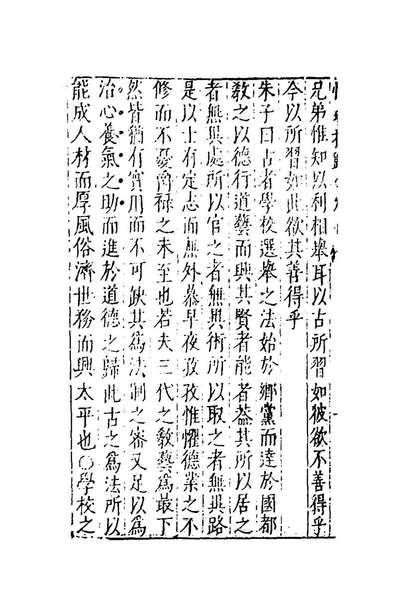 兄弟惟知以利相舉耳以古所習如彼欲不善得乎
今以所習如此欲其善得乎
朱子曰古者學校選舉之法始於鄉黨而達於國都
敎之以德行道藝而興其賢者能者葢其所以居之
者無異處所以官之者無異術所以取之者無異路
是以士有定志而無外慕早夜孜孜惟懼德業之不
修而不憂爵祿之未至也若夫三代之敎藝爲最下
然皆猶有實用而不可缺其爲法制之審又足以爲
治心養氣之助而進於道德之歸此古之爲法所以
能成人材而厚風俗濟世務而興太平也○學校之